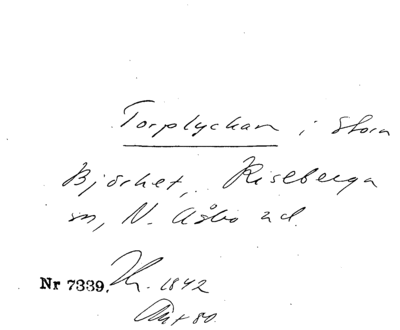 Torplyckan i Stora
Björket, Riseberga
sn, N. Åsbo hd.
Nr 7339. Hr. 1842
Akt 80.